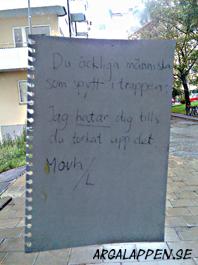 Du äckliga människa
som spytt i trappen:
Jag hatar dig tills
du torkat upp det.
Mvh
/L
ARGALAPPEN.SE